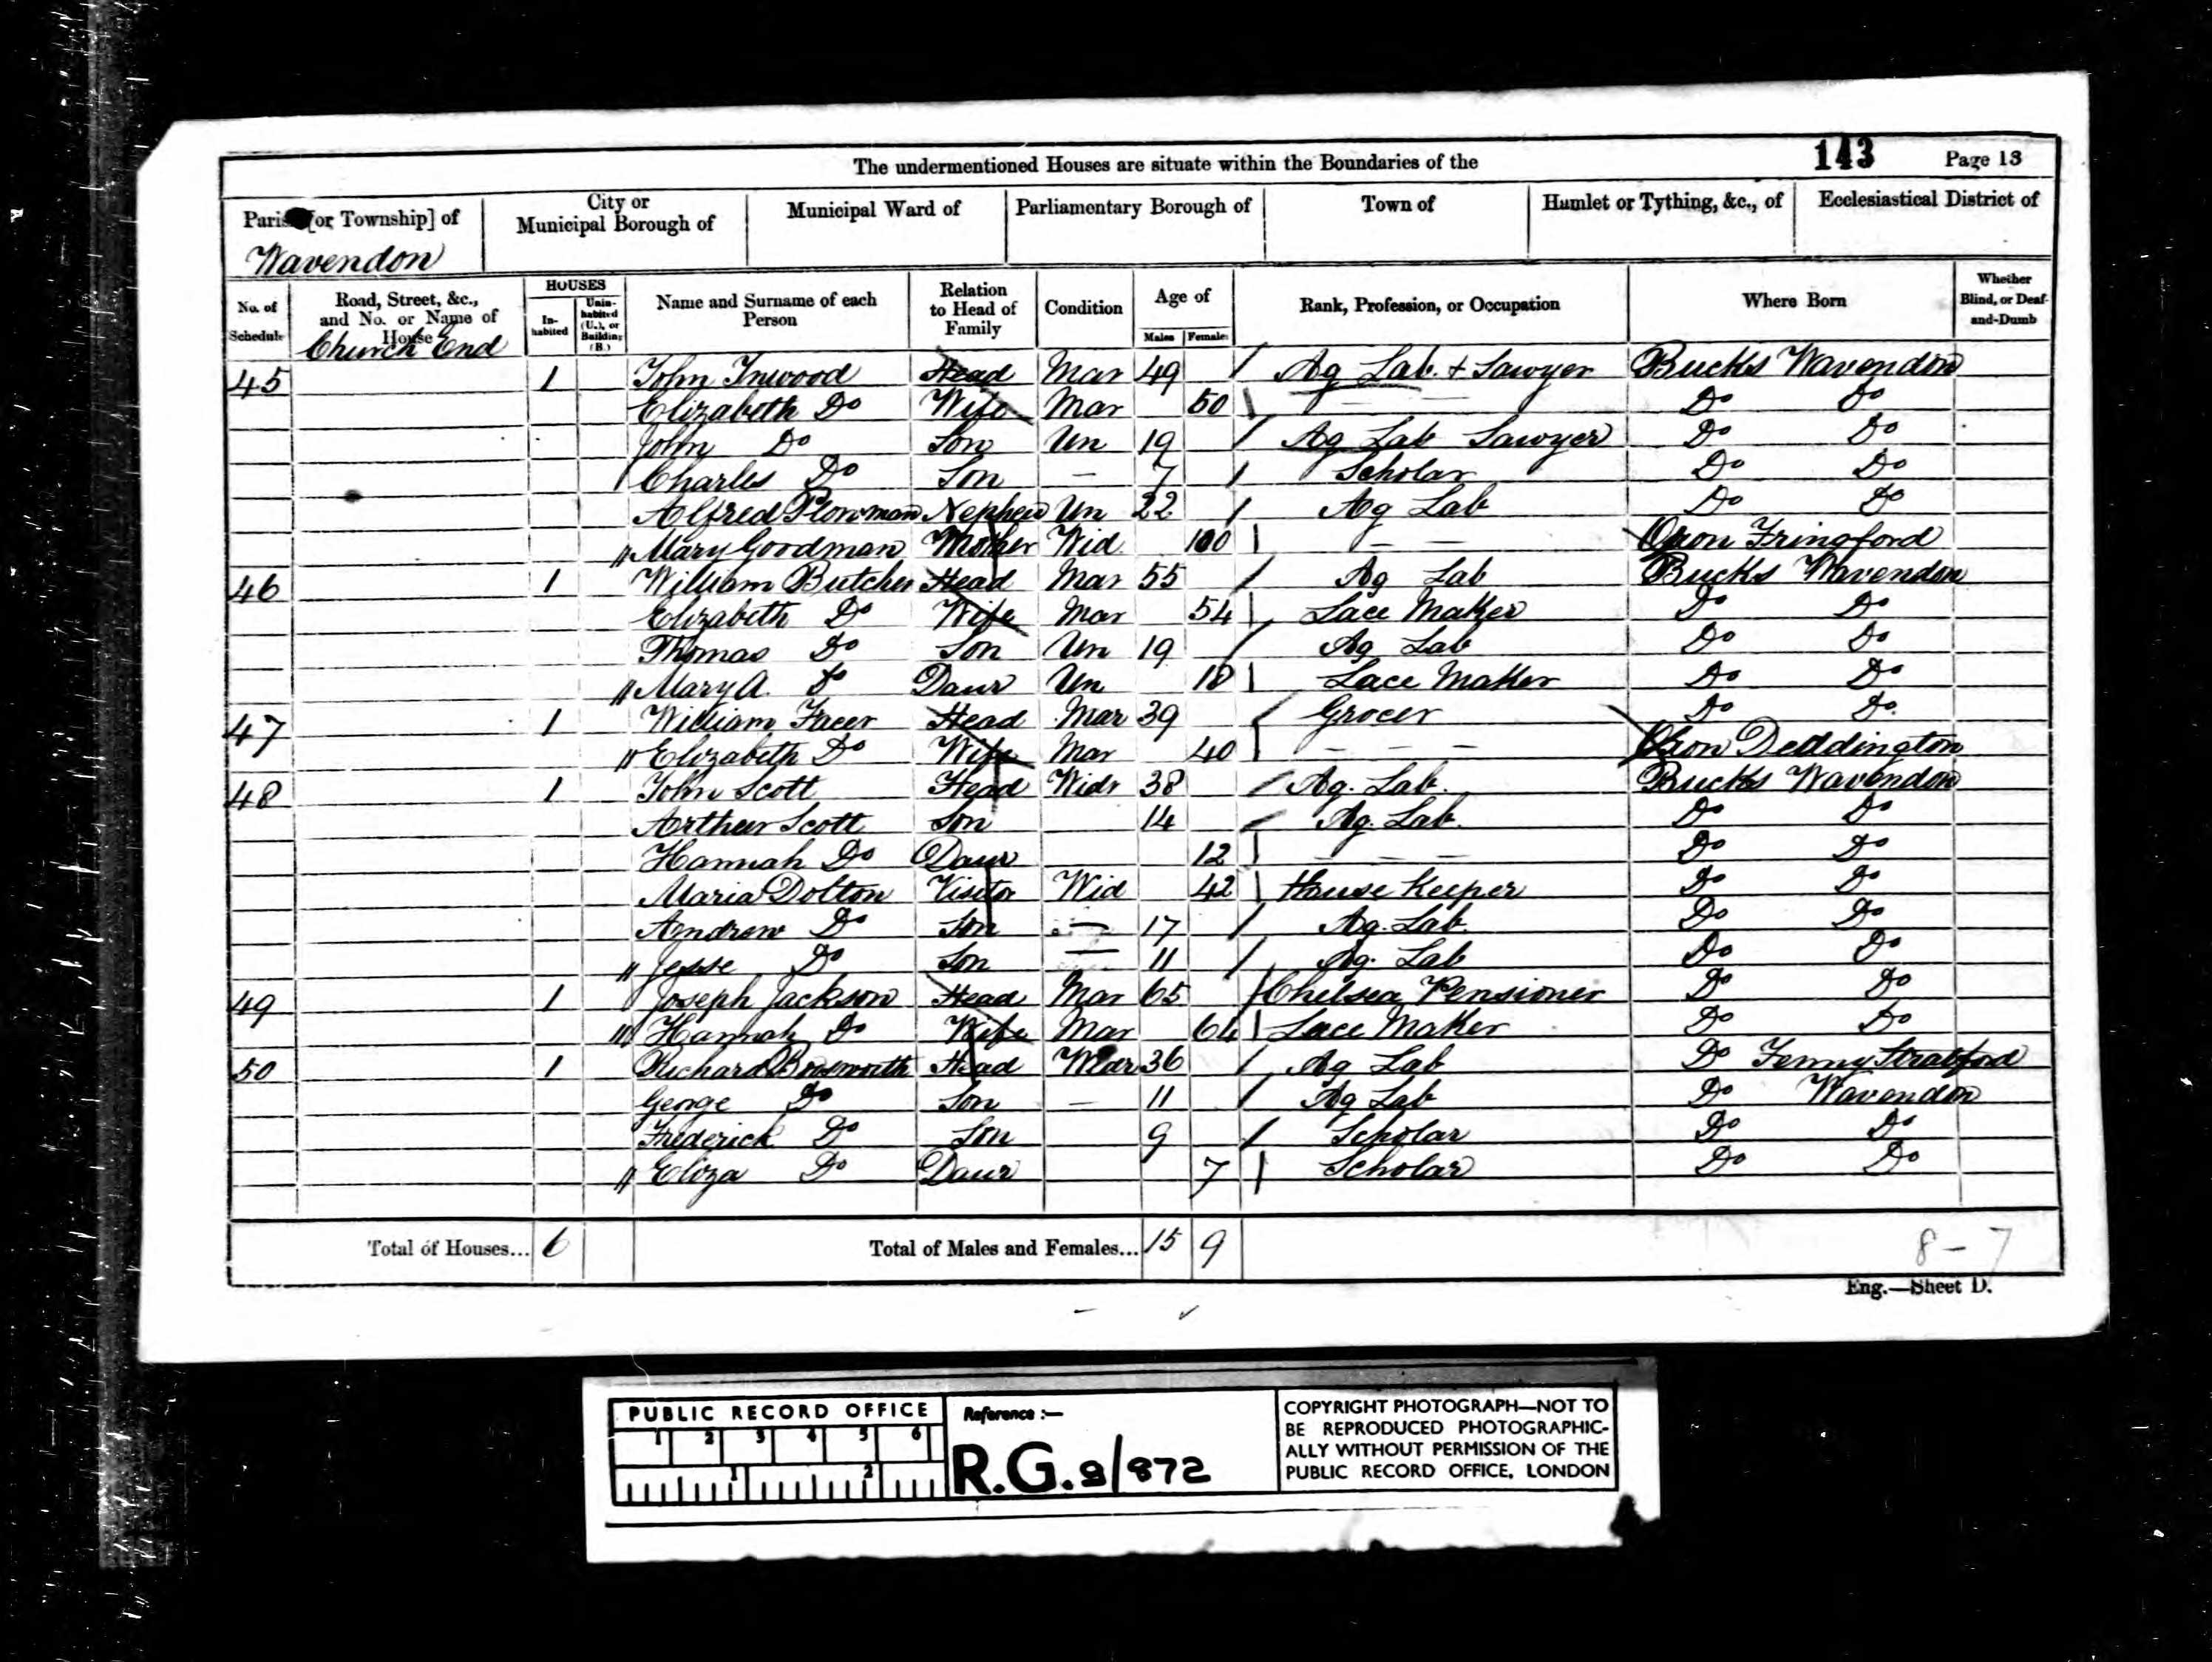 The undermentioned Houses are situate within the Boundaries of the 143 Page 13
Paris [or Township] of City or Municipal Borough of Municipal Ward of Parliamentary Borough of Town of Hamlet or Tything, &c., of Ecclesiastical District of
Wavendon
No. of Schedule Road, Street, &c., and No. or Name of House HOUSES In-habited Unin-habited (U.), or Building (B.) Name and Surname of each Person Relation to Head of Family Condition Age of Males Females Rank, Profession, or Occupation Where Born Whether Blind, or Deaf-and-Dumb
Church End
45 1 John Inwood Head Mar 49 Ag Lab. + Sawyer Bucks Wavendon
Elizabeth Do Wife Mar 50 Do Do
John Do Son Un 19 Ag Lab Sawyer Do Do
Charles Do Son — 7 Scholar Do Do
Alfred Plowman Nephew Un 22 Ag Lab Do Do
Mary Goodman Mother Wid 100 — — Oxon Fringford
46 1 William Butcher Head Mar 55 Ag Lab Bucks Wavendon
Elizabeth Do Wife Mar 54 Lace Maker Do Do
Thomas Do Son Un 19 Ag Lab Do Do
Mary A. Do Daur Un 18 Lace Maker Do Do
47 1 William Facer Head Mar 39 Grocer Do Do
Elizabeth Do Wife Mar 40 — — — Oxon Deddington
48 1 John Scott Head Widr 38 Ag. Lab. Bucks Wavendon
Arthur Scott Son 14 Ag. Lab. Do Do
Hannah Do Daur 12 — — — Do Do
Maria Dolton Visitor Wid 42 House Keeper Do Do
Andrew Do Son — 17 Ag. Lab. Do Do
Jesse Do Son — 11 Ag. Lab Do Do
49 1 Joseph Jackson Head Mar 65 Chelsea Pensioner Do Do
Hannah Do Wife Mar 64 Lace Maker Do Do
50 1 Richard Bosworth Head Widr 36 Ag Lab Do Fenny Stratford
George Do Son — 11 Ag Lab Do Wavendon
Frederick Do Son 9 Scholar Do Do
Eliza Do Daur 7 Scholar Do Do
Total of Houses... 6 Total of Males and Females... 15 9 8 - 7
Eng.—Sheet D.
PUBLIC RECORD OFFICE
1 2 3 4 5 6
1 2
Reference :—
R.G. 9/872
COPYRIGHT PHOTOGRAPH—NOT TO
BE REPRODUCED PHOTOGRAPHIC-
ALLY WITHOUT PERMISSION OF THE
PUBLIC RECORD OFFICE, LONDON